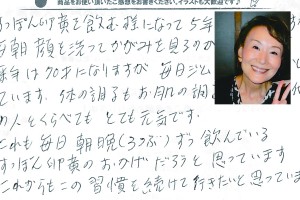 商品をお使い頂いたご感想をお書きください。イラストも大歓迎です♪
っぽん卵黄を飲む様になって5年
毎朝顔を洗ってかがみを見るの
年は70才になりますが 毎日ジム
ています。体の調子もお肌の調
の人とくらべても とても元気です。
これも毎日 朝晩(3つぶ)ずつ飲んでいる
すっぽん卵黄のおかげだろうと思っています
これからもこの習慣を続けて行きたいと思っていま